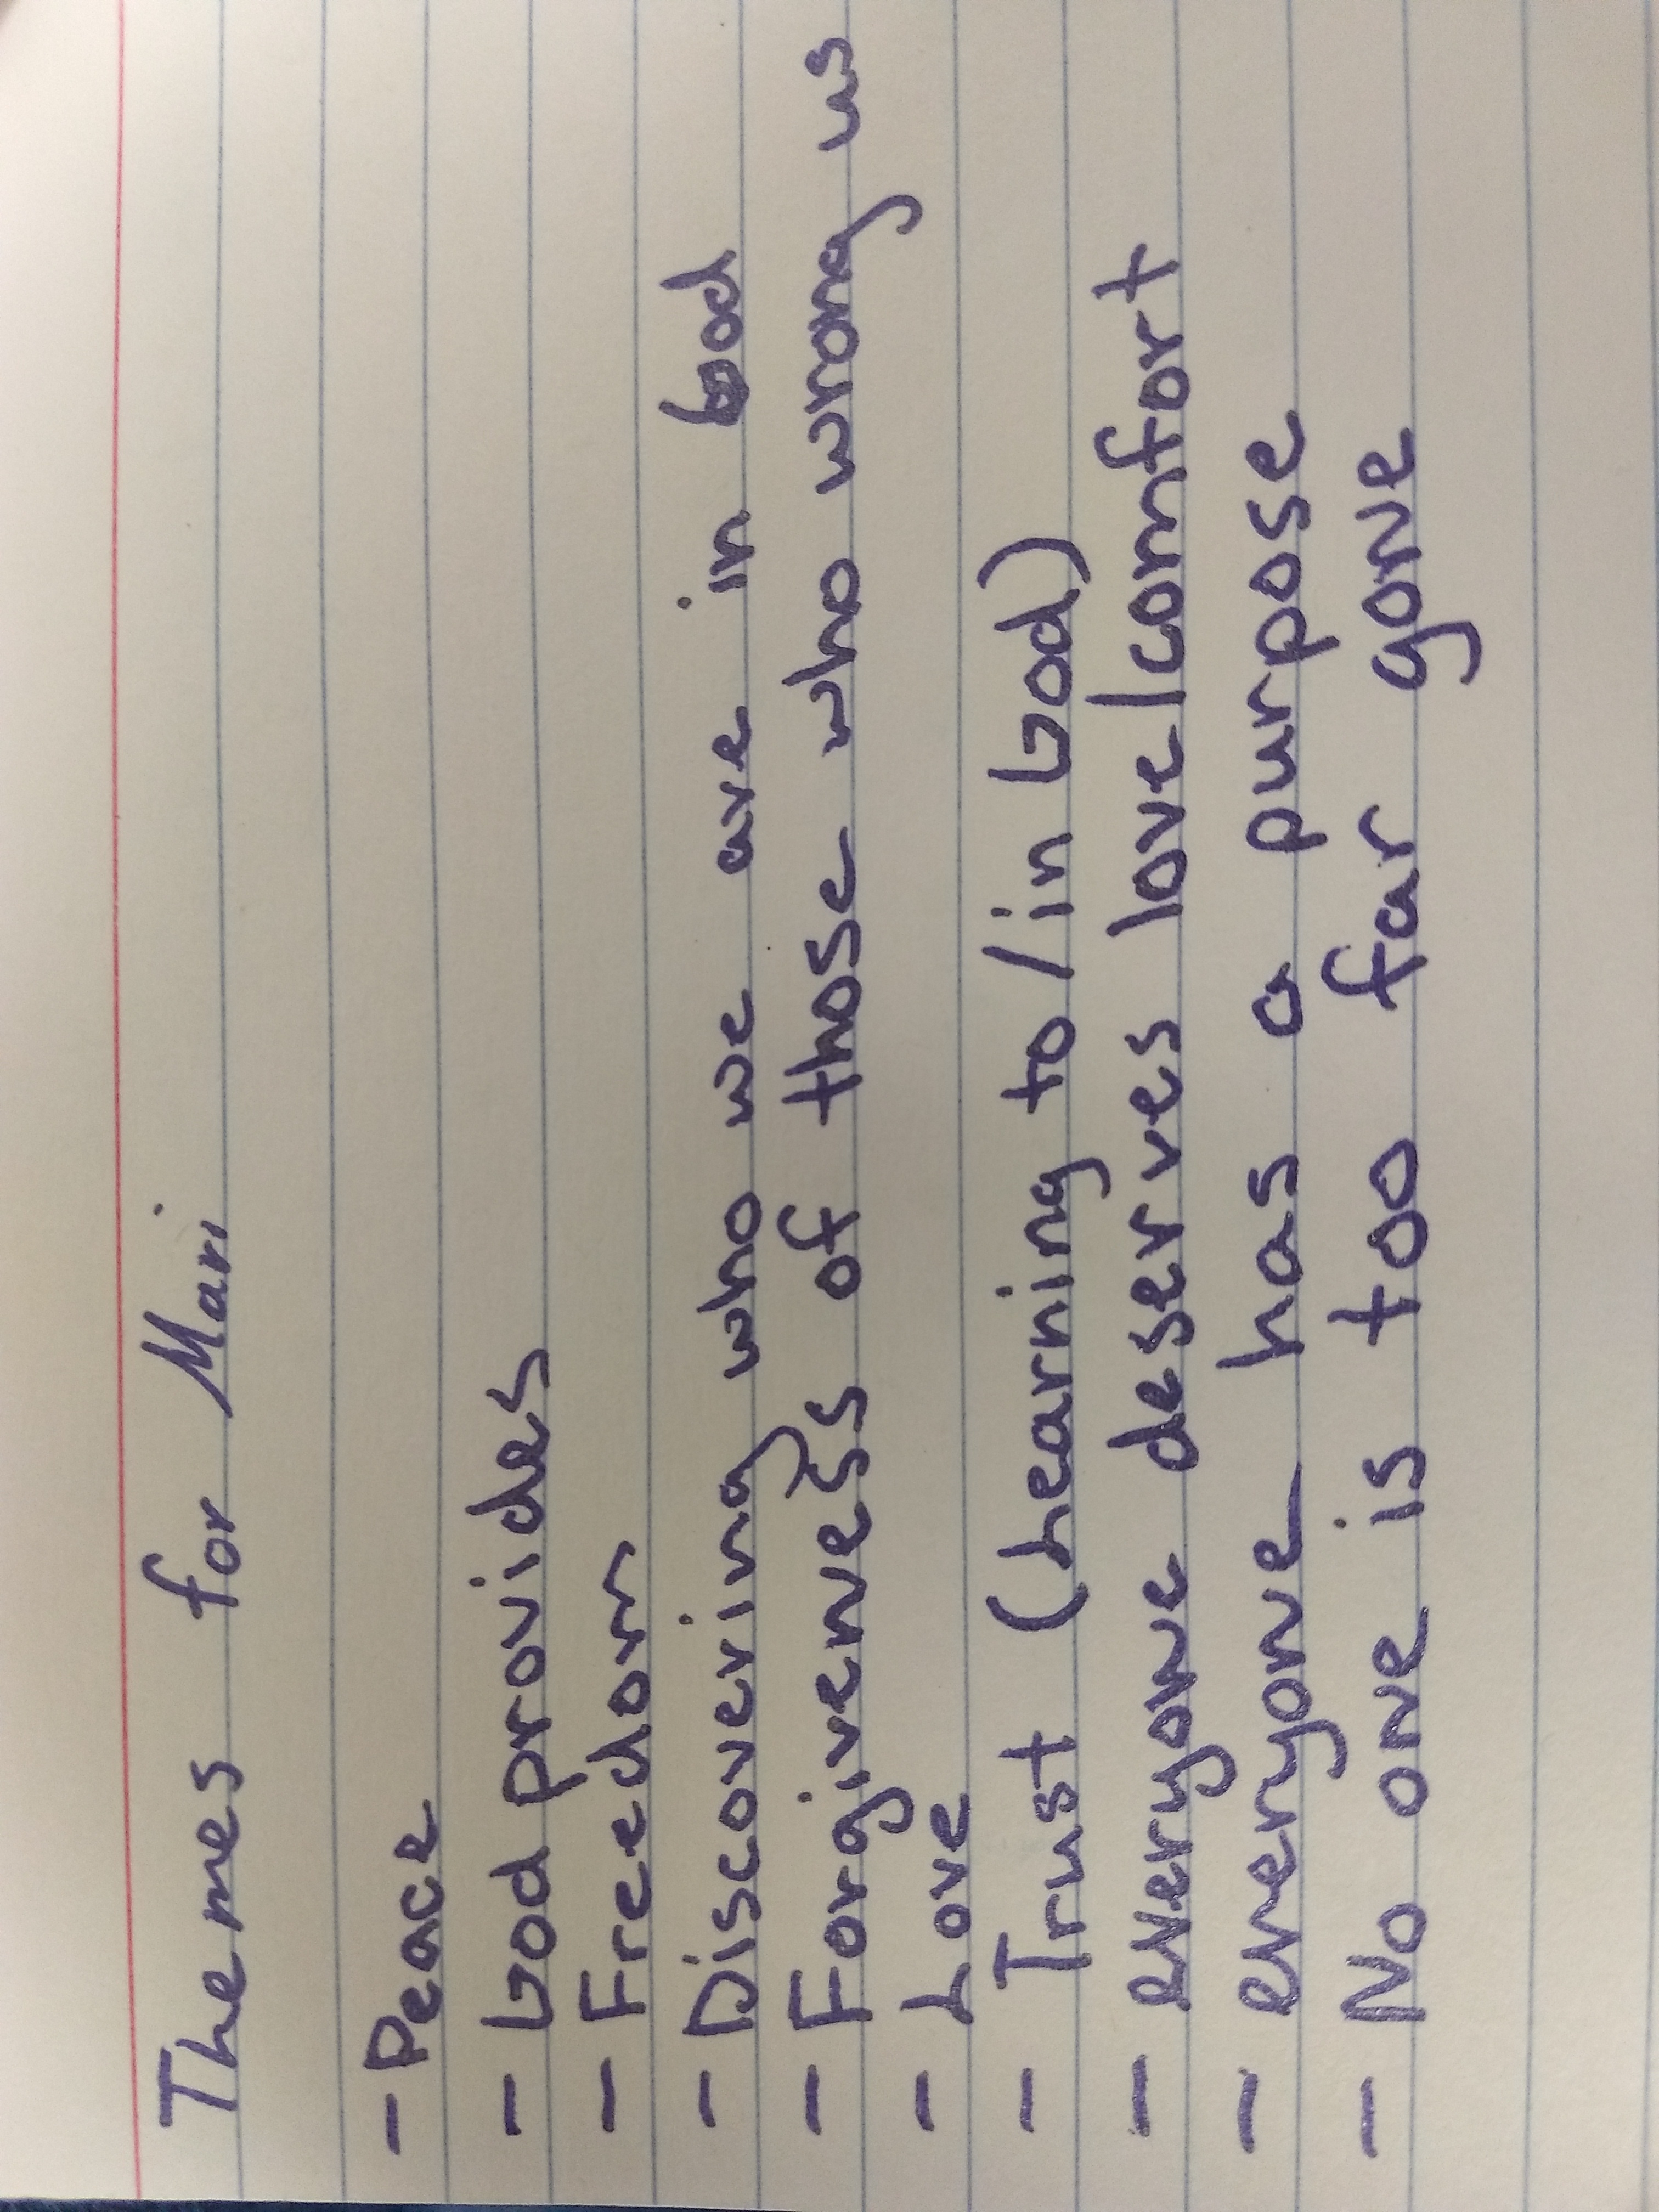 Themes for Mari
- Peace
- God provides
- Freedom
- Discovering who we are in God
- Forgiveness of those who wrong us
- Love
- Trust (Learning to/in God)
- everyone deserves love/comfort
- everyone has a purpose
- No one is too far gone